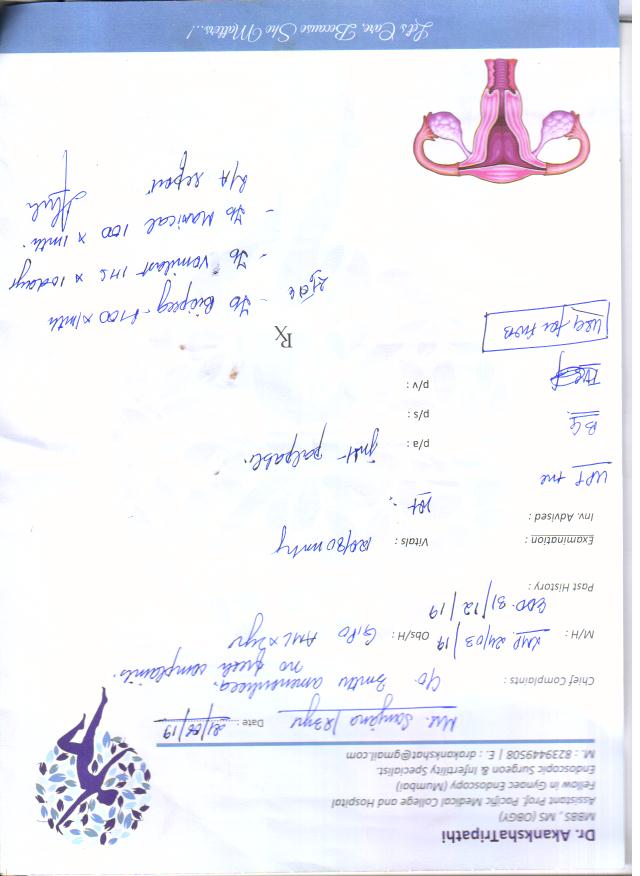 Dr. AkankshaTripathi
MBBS, MS (OBGY)
Assistant Prof. Pacific Medical College and Hospital
Fellow in Gynaec Endoscopy (Mumbai)
Endoscopic Surgeon & Infertility Specialist.
M. : 8239449508 | E. : drakankshat@gmail.com
Mrs. Sanjana Date : 21/06/19
Chief Complaints : c/o 3mths amenorrhoea.
no fresh complaints.
M/H : LMP 24/03/19 Obs/H : G1P0 AML x 3yr
EDD. 31/12/19
Past History :
Examination : Vitals : 120/80 mmHg
Inv. Advised :
UPT +ve
p/a : just palpable.
BG
p/s :
p/v :
USG for FWB
Rx
- Tb x 1mth
- Tb Vomilast 1HS x 10days
- Tb 100 x 1mth.
R/A report
Let's Care, Because She Matters...!